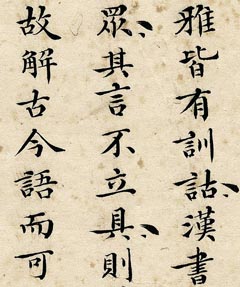 雅皆有訓詁漢書
眾其言不立具則
故解古今語而可